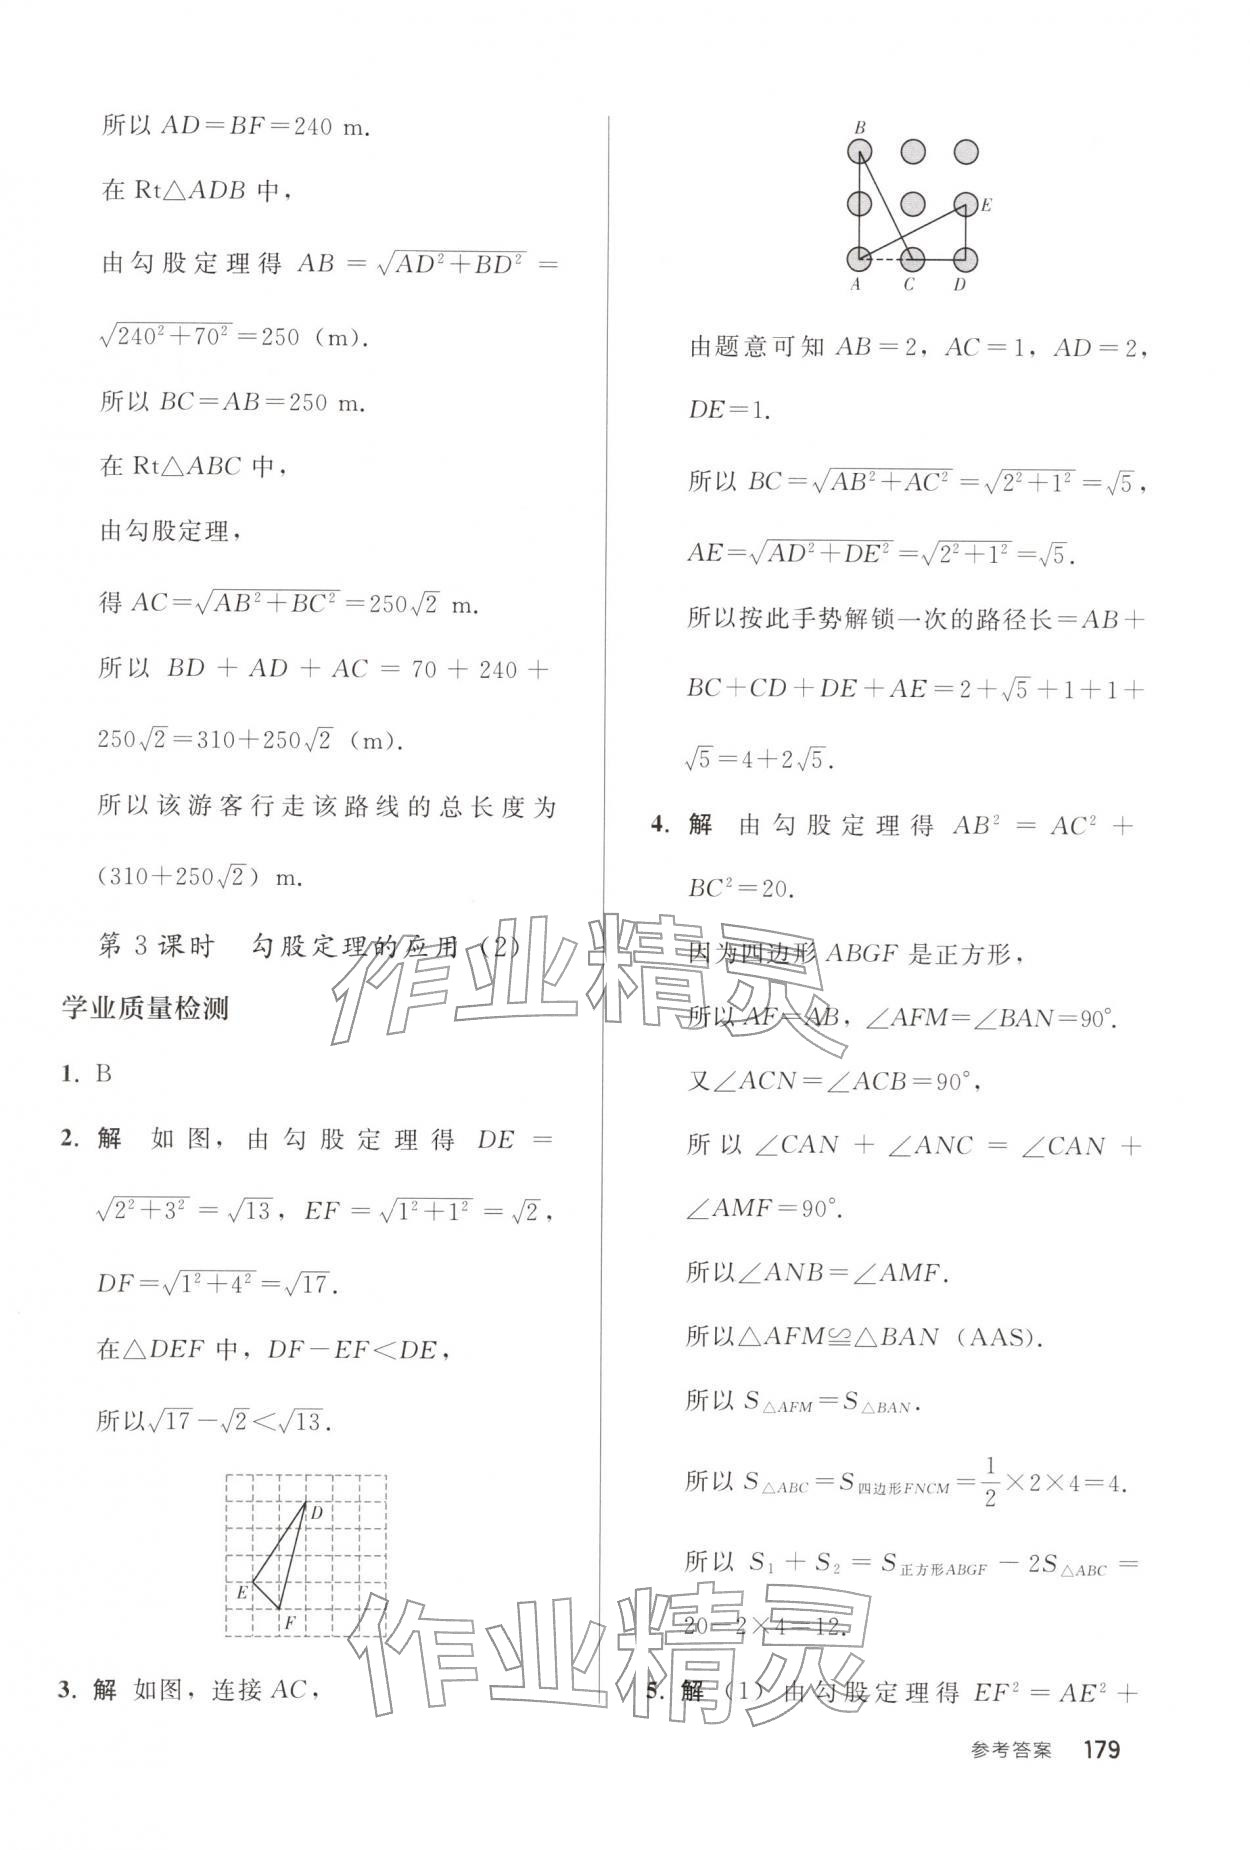 所以 AD=BF=240 m.
在 Rt△ADB 中,
由勾股定理得 AB=√(AD²+BD²)=
√(240²+70²)=250 (m).
所以 BC=AB=250 m.
在 Rt△ABC 中,
由勾股定理,
得 AC=√(AB²+BC²)=250√2 m.
所以 BD+AD+AC=70+240+
250√2=310+250√2 (m).
所以该游客行走该路线的总长度为
(310+250√2) m.
第 3 课时 勾股定理的应用 (2)
学业质量检测
1. B
2. 解 如图, 由勾股定理得 DE=
√(2²+3²)=√13, EF=√(1²+1²)=√2,
DF=√(1²+4²)=√17.
在△DEF 中, DF-EF<DE,
所以√17-√2<√13.
D
E
F
3. 解 如图, 连接 AC,
B
E
A C D
由题意可知 AB=2, AC=1, AD=2,
DE=1.
所以 BC=√(AB²+AC²)=√(2²+1²)=√5,
AE=√(AD²+DE²)=√(2²+1²)=√5.
所以按此手势解锁一次的路径长=AB+
BC+CD+DE+AE=2+√5+1+1+
√5=4+2√5.
4. 解 由勾股定理得 AB²=AC²+
BC²=20.
因为四边形 ABGF 是正方形,
所以 AF=AB, ∠AFM=∠BAN=90°.
又∠ACN=∠ACB=90°,
所以 ∠CAN+∠ANC=∠CAN+
∠AMF=90°.
所以∠ANB=∠AMF.
所以△AFM≌△BAN (AAS).
所以 S△AFM=S△BAN.
所以 S△ABC=S四边形FNCM=1/2×2×4=4.
所以 S₁+S₂=S正方形ABGF-2S△ABC=
20-2×4=12.
5. 解 (1) 由勾股定理得 EF²=AE²+
参考答案 179
作业精灵
作业精灵